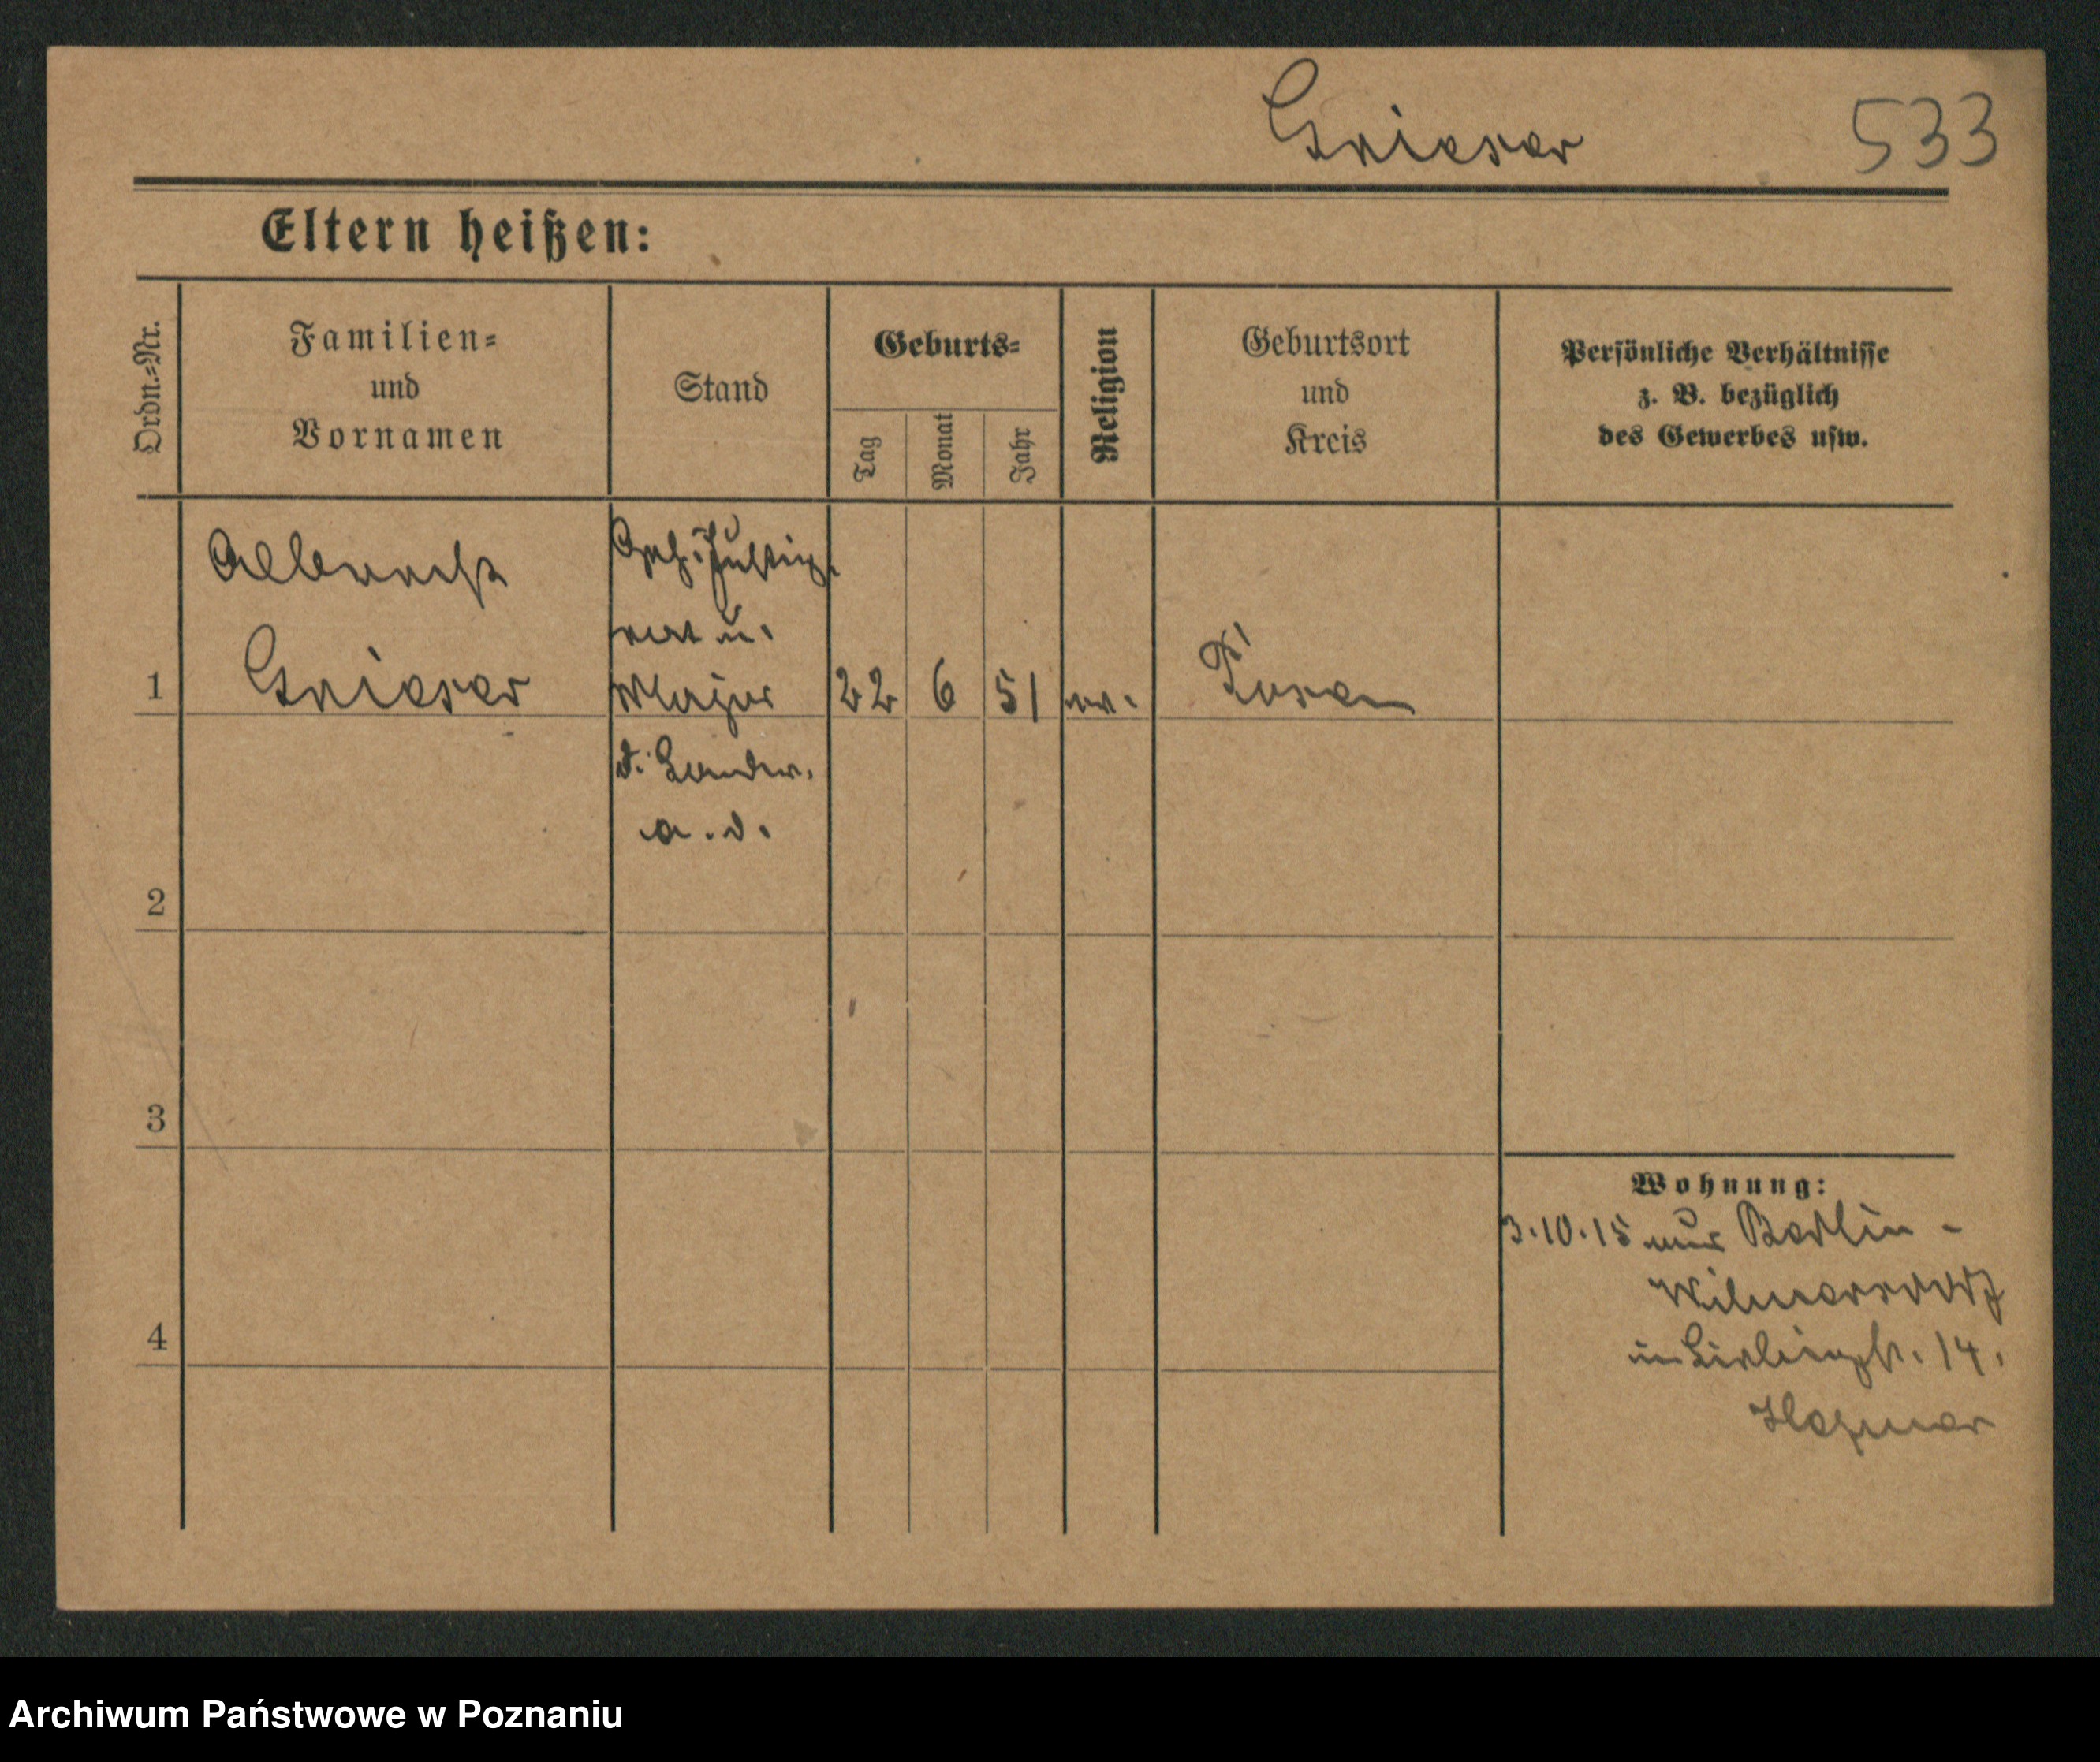 Grieser 533
Eltern heißen:
Ordn.-Nr.
Familien-
und
Vornamen
Stand
Geburts-
Tag
Monat
Jahr
Religion
Geburtsort
und
Kreis
Persönliche Verhältnisse
z. B. bezüglich
des Gewerbes usw.
Albrecht Geh. Justiz
rat u.
1 Grieser Major 22 6 51 ev. Posen
d. Landw.
a. d.
2
3
Wohnung:
3.10.15 nur Berlin -
Wilmersdorf
14.
4
Archiwum Państwowe w Poznaniu